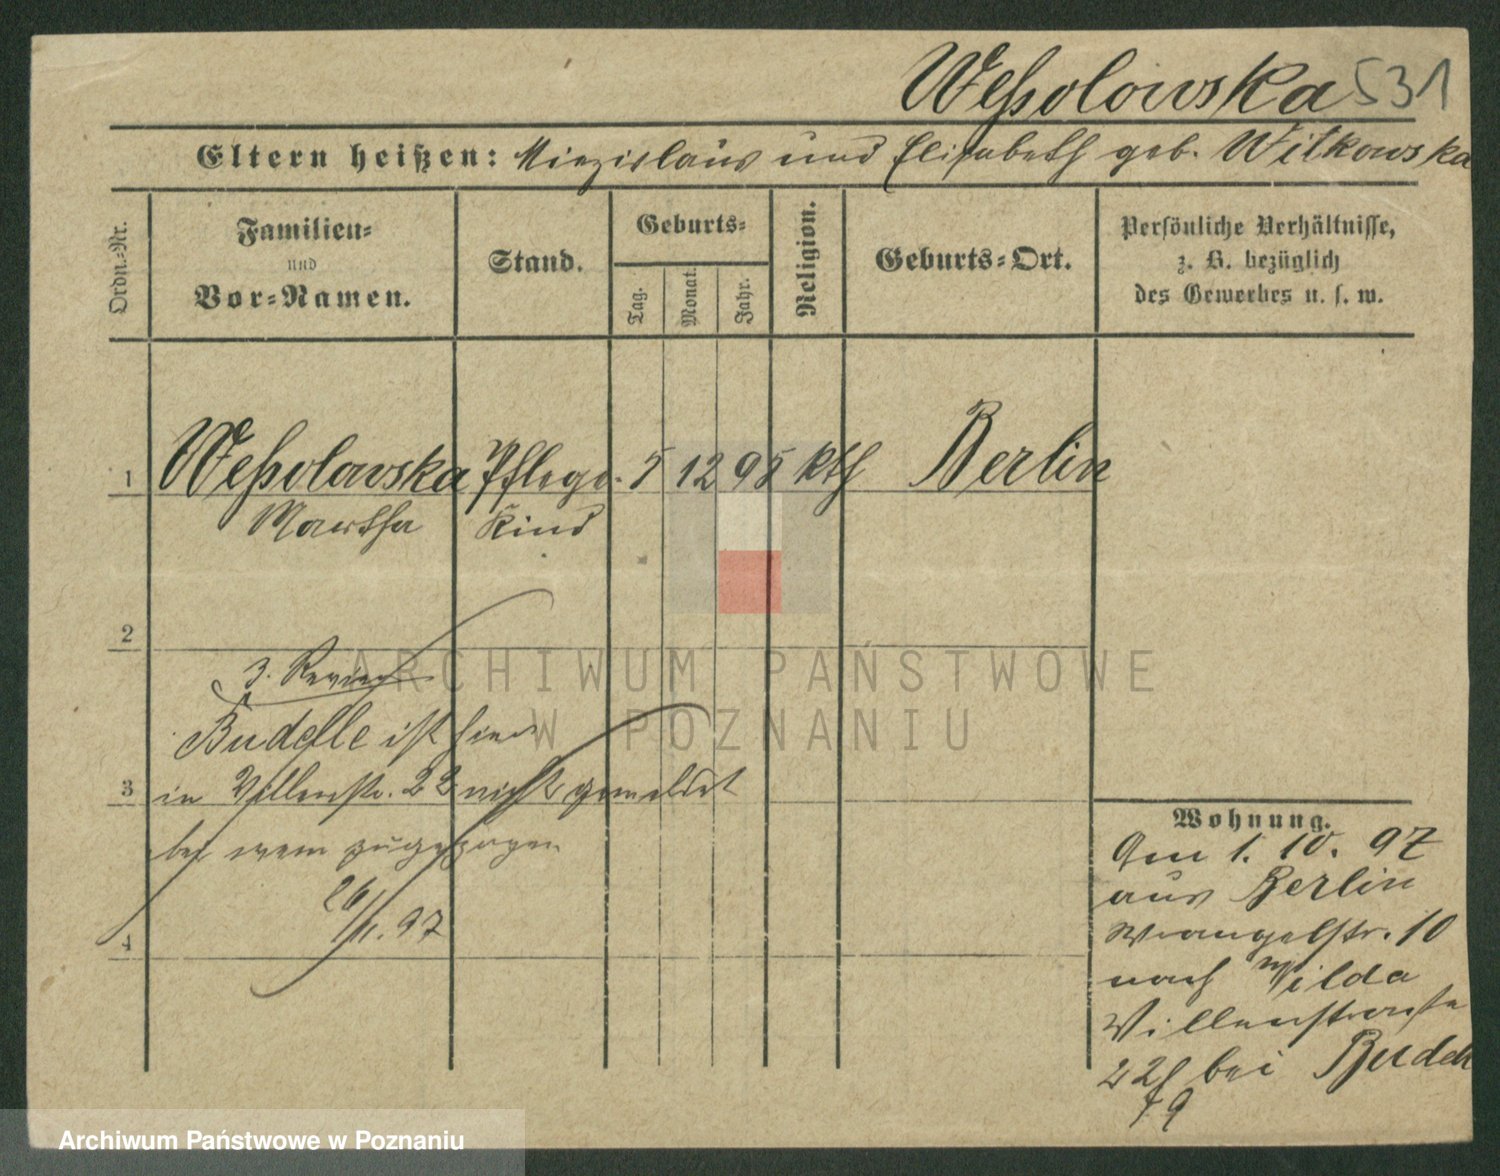 Weßolowska 531
Eltern heißen: Miezislaus und Elisabeth geb. Witkowska
Ordn.-Nr.
Familien-
und
Vor-Namen.
Stand.
Geburts-
Tag.
Monat.
Jahr.
Religion.
Geburts-Ort.
Persönliche Verhältnisse,
z. B. bezüglich
des Gewerbes u. s. w.
1 Weßolowska Pflege- 5 12 95 kth Berlin
Martha Kind
2
3. Revier
Budelle ist hier
3 in Villenstr. 22 nicht gemeldet
bei wem zugezogen
26/11. 97
4
Wohnung.
Am 1. 10. 97
aus Berlin
Wrangelstr. 10
nach Wilda
Villenstraße
22 bei
ARCHIWUM PAŃSTWOWE
W POZNANIU
Archiwum Państwowe w Poznaniu